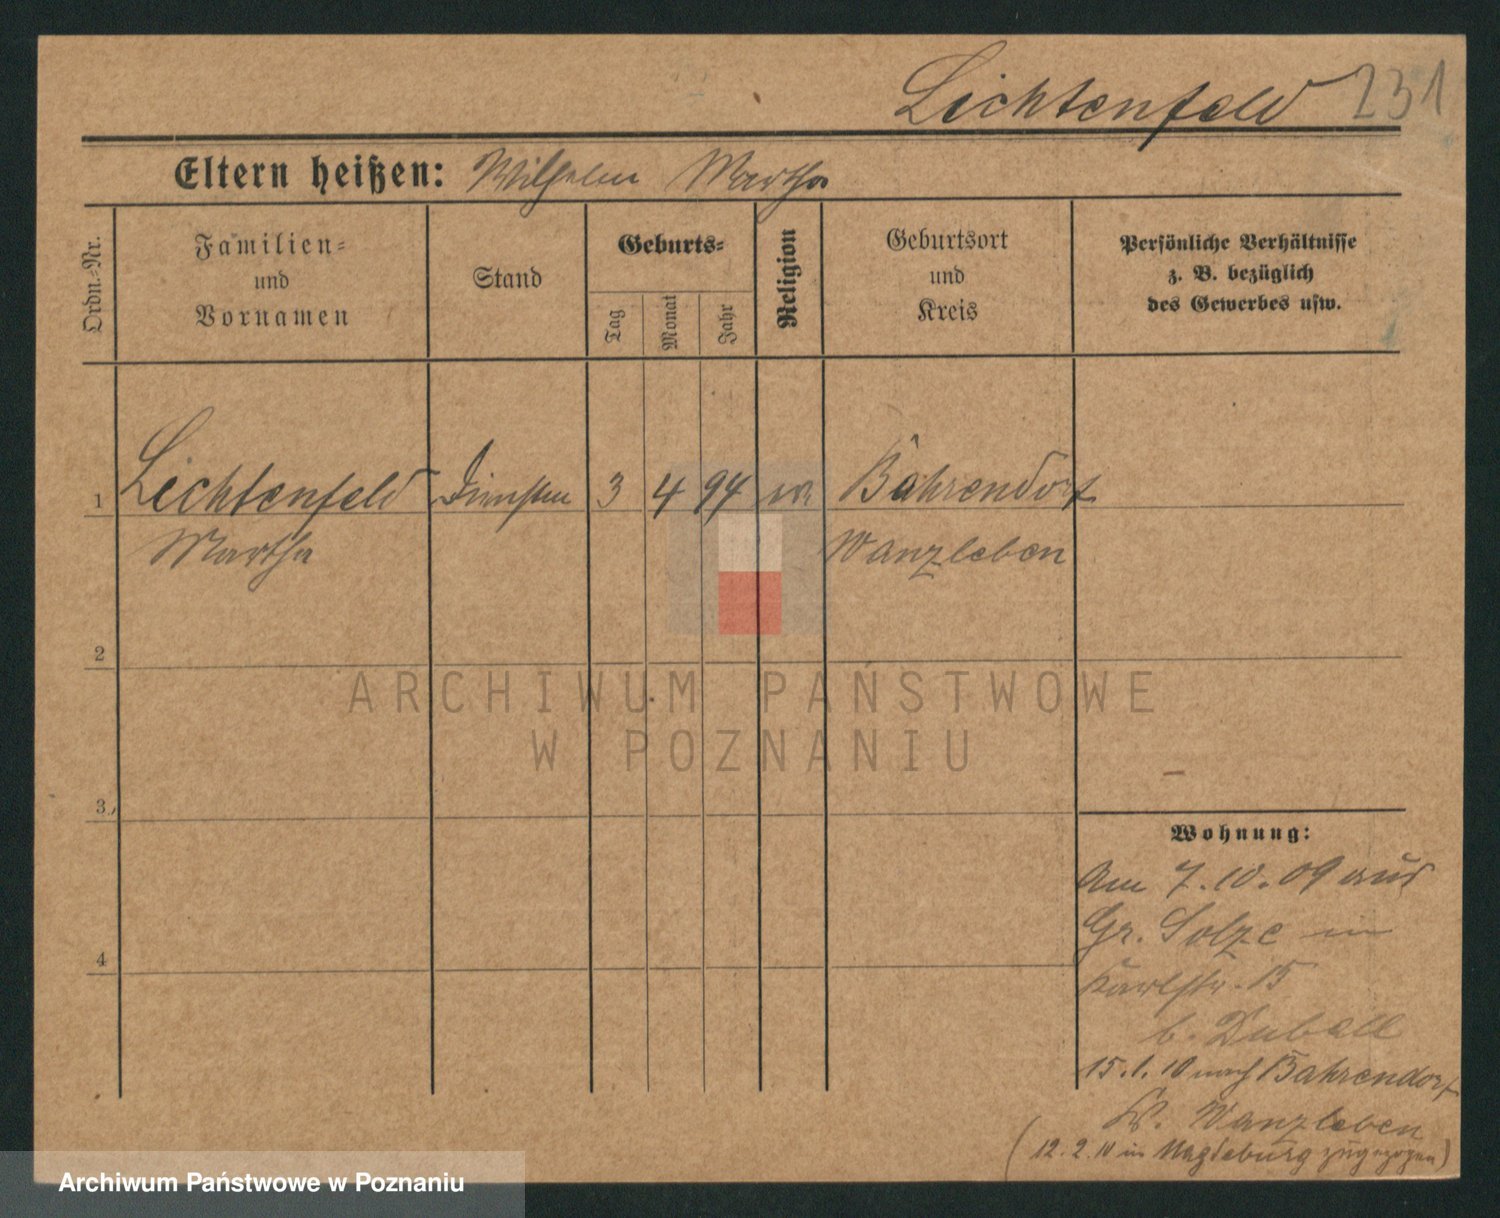 Lichtenfeld 231
Eltern heißen: Wilhelm Martha
Ordn.=Nr.
Familien=
und
Vornamen
Stand
Geburts=
Tag
Monat
Jahr
Religion
Geburtsort
und
Kreis
Persönliche Verhältnisse
z. B. bezüglich
des Gewerbes usw.
1 Lichtenfeld 3 4 94 Bahrendorf
Martha Wanzleben
2
ARCHIWUM PAŃSTWOWE
W POZNANIU
3
Wohnung:
Am 7.10.09 aus
Gr. Solze in
Karlstr. 15
b.
15.1.10 nach Bahrendorf
Kr. Wanzleben
(12.2.10 in Magdeburg zugezogen)
4
Archiwum Państwowe w Poznaniu